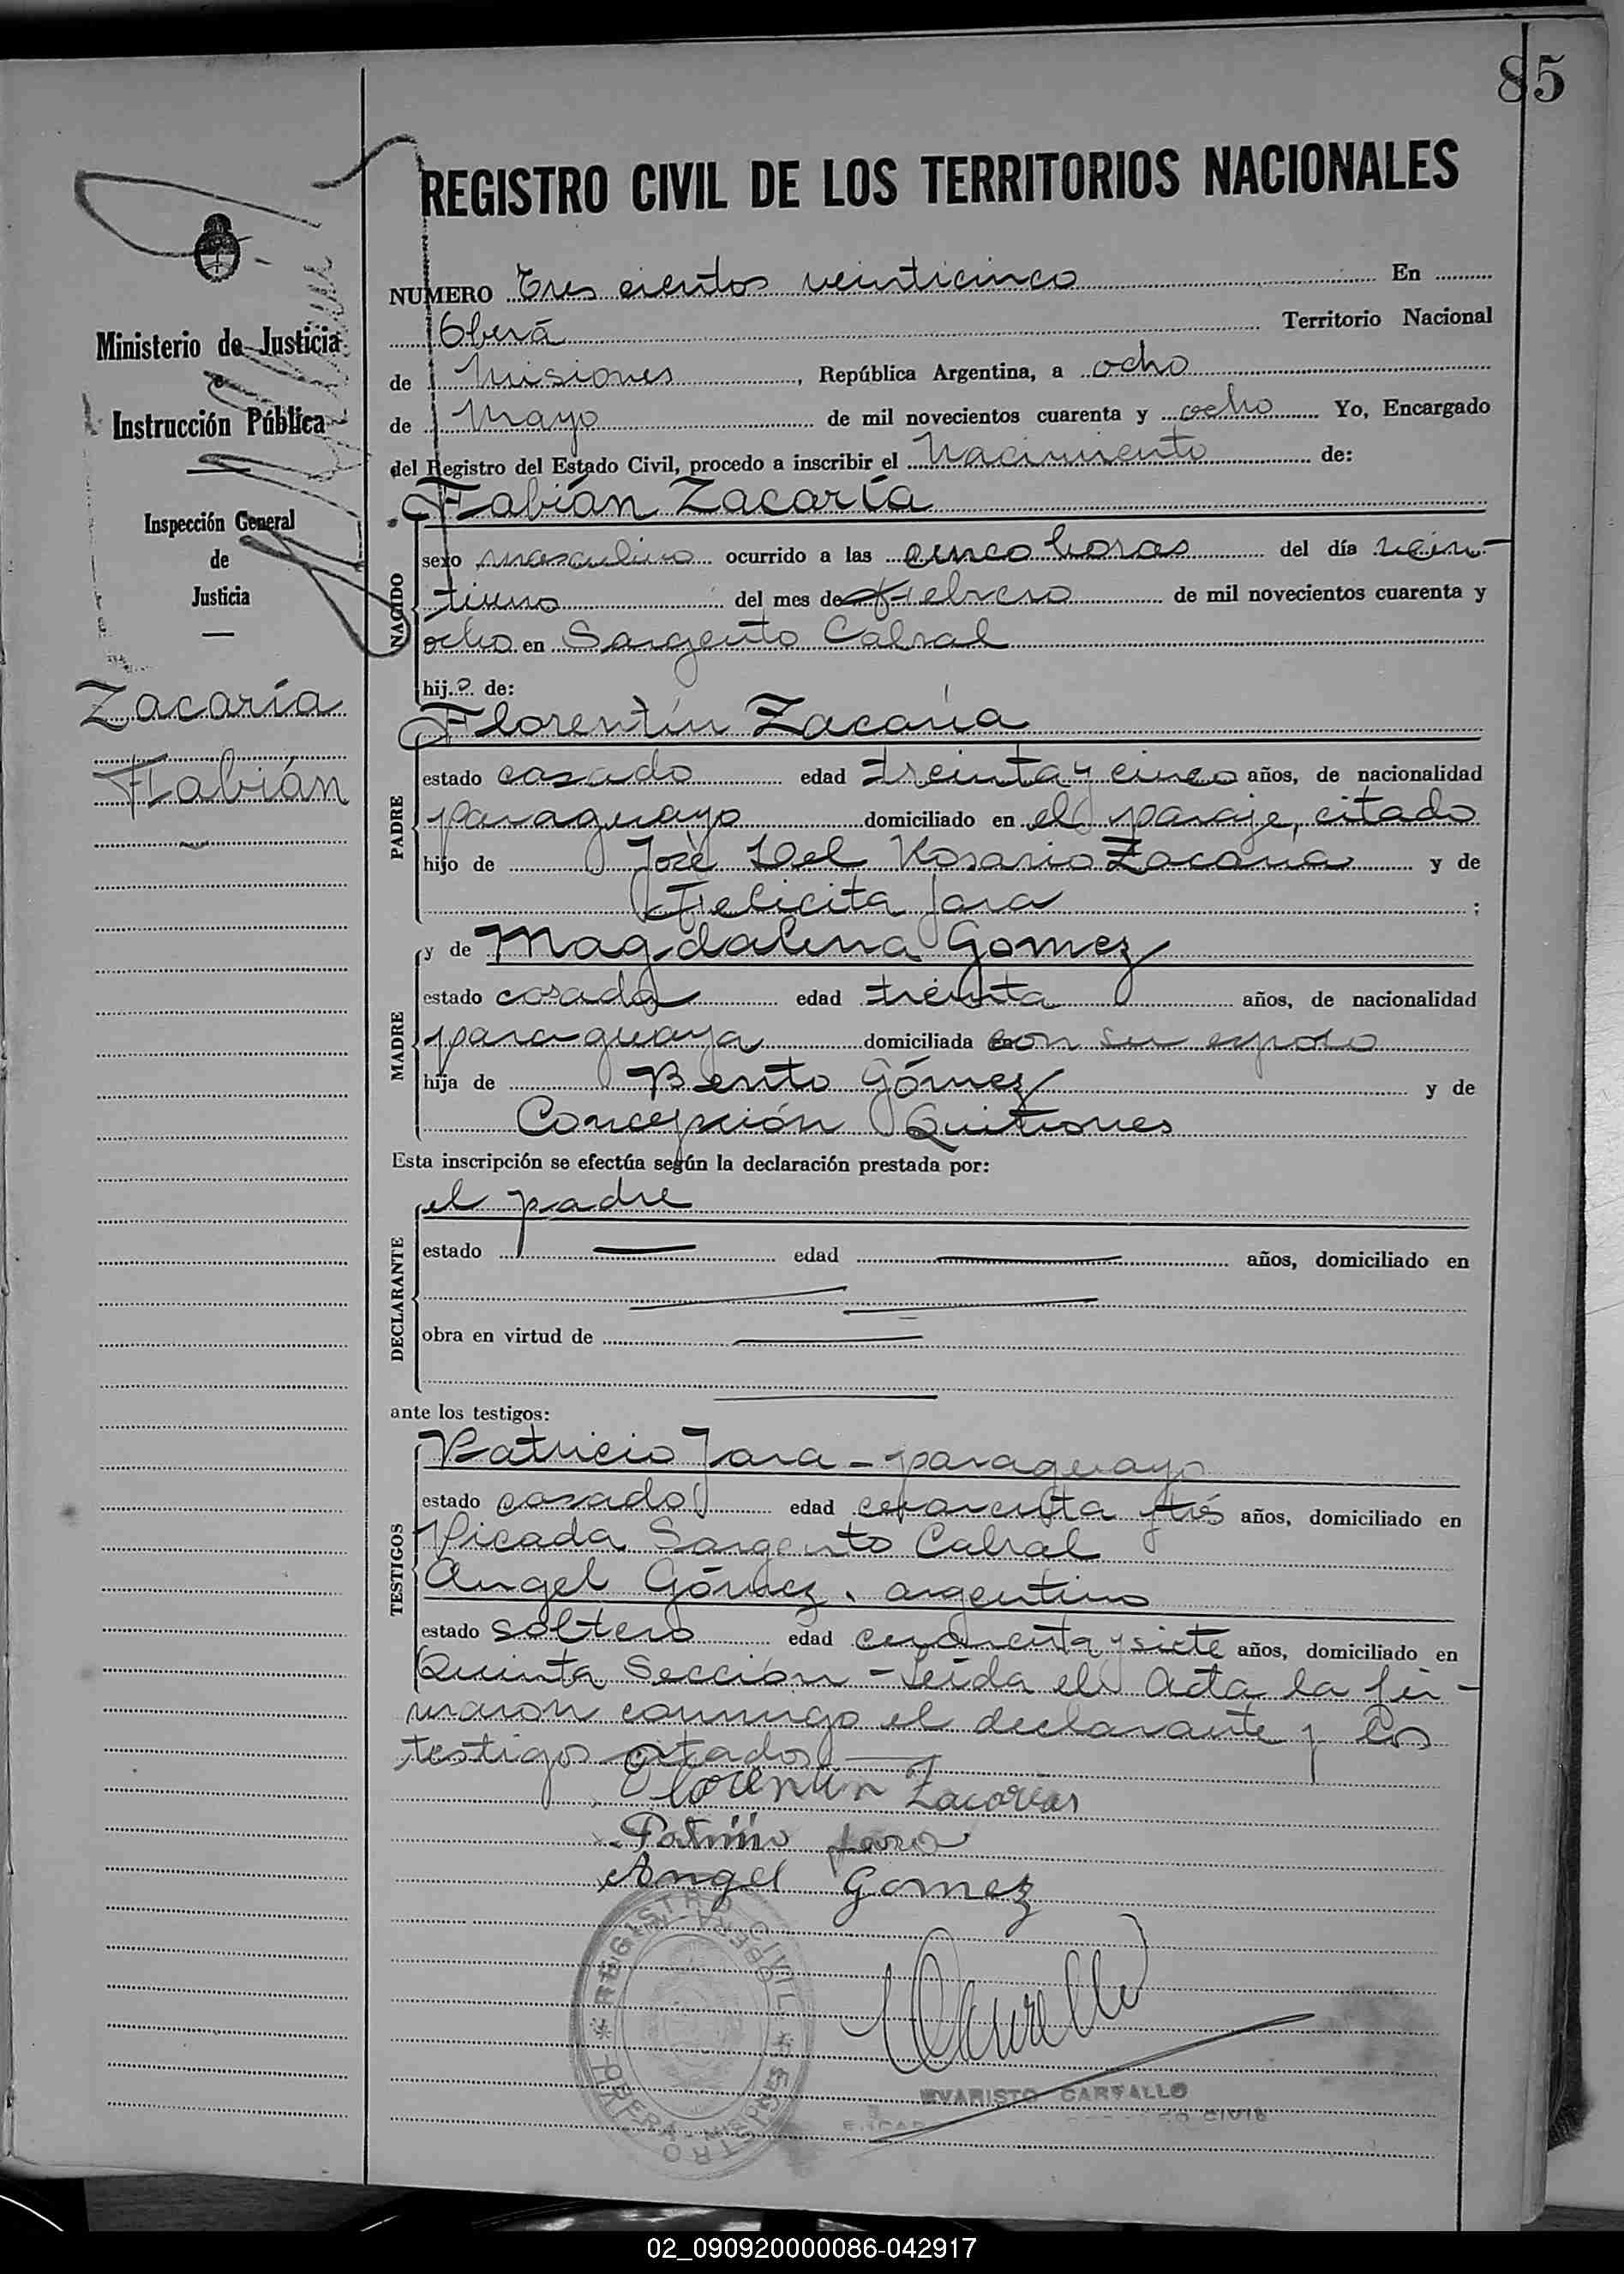 85
REGISTRO CIVIL DE LOS TERRITORIOS NACIONALES
Ministerio de Justicia
e
Instrucción Pública
Inspección General
de
Justicia
Zacaría
Fabián
NUMERO Tres cientos veinticinco En
Oberá Territorio Nacional
de Misiones, República Argentina, a ocho
de Mayo de mil novecientos cuarenta y ocho Yo, Encargado
del Registro del Estado Civil, procedo a inscribir el Nacimiento de:
Fabián Zacaría
NACIDO
sexo masculino ocurrido a las cinco horas del día vein-
tiuno del mes de Febrero de mil novecientos cuarenta y
ocho en Sargento Cabral
hijo de:
Florentín Zacaría
PADRE
estado casado edad treinta y cinco años, de nacionalidad
paraguayo domiciliado en el paraje, citado
hijo de José Del Rosario Zacaría y de
Felicita Jara;
y de Magdalena Gomez
MADRE
estado casada edad treinta años, de nacionalidad
paraguaya domiciliada con su esposo
hija de Bento Gómez y de
Concepción Quitiones
Esta inscripción se efectúa según la declaración prestada por:
el padre
DECLARANTE
estado — edad — años, domiciliado en
obra en virtud de
ante los testigos:
Patricio Jara - paraguayo
TESTIGOS
estado casado edad cuarenta y tres años, domiciliado en
Picada Sargento Cabral
Angel Gómez. argentino
estado soltero edad cuarenta y siete años, domiciliado en
Quinta Sección - Leída el Acta la fir-
maron conmigo el declarante y los
testigos citados
Florentin Zacarias
Patricio Jara
Angel Gomez
REGISTRO CIVIL
EVARISTO CARVALLO
CIVIL
02_090920000086-042917